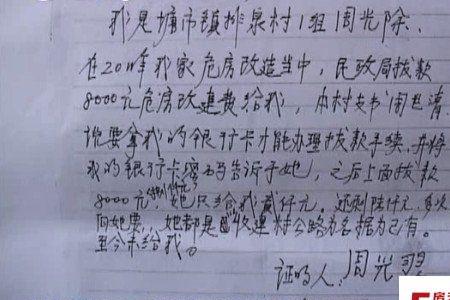 我是塘市镇排泉村1组周光除、
在2011年我家危房改造当中,民政局拔款
8000元危房改建费给我,由村支书周赴清
说要拿我的银行卡才能办理拔款手续,并将
我的银行卡密码告诉于她,之后上面拔款
8000元,她只给我贰仟元。还剩陆仟元,多次
向她要,她都是收建村公路为名据为己有。
至今未给我。
证明人:周光
房